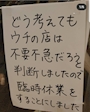 どう考えても
ウチの店は
不要不急だろうと
判断しましたので
臨時休業を
することにしました